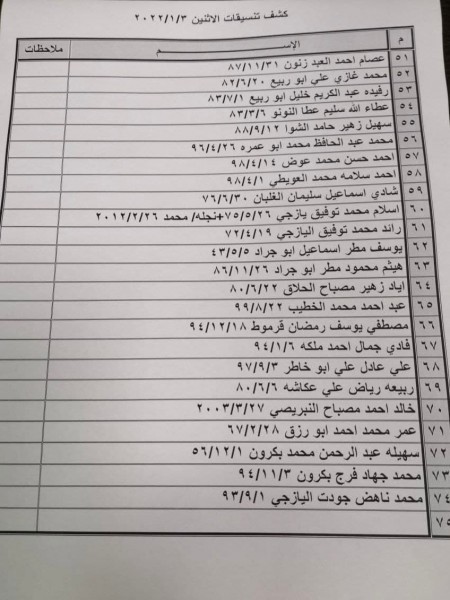 كشف تنسيقات الاثنين ٢٠٢٢/١/٣
م الإســـــم ملاحظات
٥١ عصام احمد العبد زنون ٨٧/١١/٣١
٥٢ محمد غازي علي ابو ربيع ٨٢/٦/٢٠
٥٣ رفيده عبد الكريم خليل ابو ربيع ٨٣/٧/١
٥٤ عطاء الله سليم عطا النونو ٨٣/٣/٦
٥٥ سهيل زهير حامد الشوا ٨٨/٩/١٢
٥٦ محمد عبد الحافظ محمد ابو عمره ٩٦/٤/٢٦
٥٧ احمد حسن محمد عوض ٩٨/٤/١٤
٥٨ احمد سلامه محمد العويطي ٩٨/٤/١
٥٩ شادي اسماعيل سليمان الغلبان ٧٦/٦/٣٠
٦٠ اسلام محمد توفيق يازجي ٧٥/٥/٢٦+نجله/ محمد ٢٠١٢/٢/٢٦
٦١ رائد محمد توفيق اليازجي ٧٢/٤/١٩
٦٢ يوسف مطر اسماعيل ابو جراد ٤٣/٥/٥
٦٣ هيثم محمود مطر ابو جراد ٨٦/١١/٢٦
٦٤ اياد زهير مصباح الحلاق ٨٠/٦/٢٢
٦٥ عبد احمد محمد الخطيب ٩٩/٨/٢٢
٦٦ مصطفي يوسف رمضان قرموط ٩٤/١٢/١٨
٦٧ فادي جمال احمد ملكه ٩٤/١/٦
٦٨ علي عادل علي ابو خاطر ٩٧/٩/٣
٦٩ ربيعه رياض علي عكاشه ٨٠/٦/٦
٧٠ خالد احمد مصباح النبريصي ٢٠٠٣/٣/٢٧
٧١ عمر محمد احمد ابو رزق ٦٧/٢/٢٨
٧٢ سهيله عبد الرحمن محمد بكرون ٥٦/١٢/١
٧٣ محمد جهاد فرج بكرون ٩٤/١١/٣
٧٤ محمد ناهض جودت اليازجي ٩٣/٩/١
٧٥